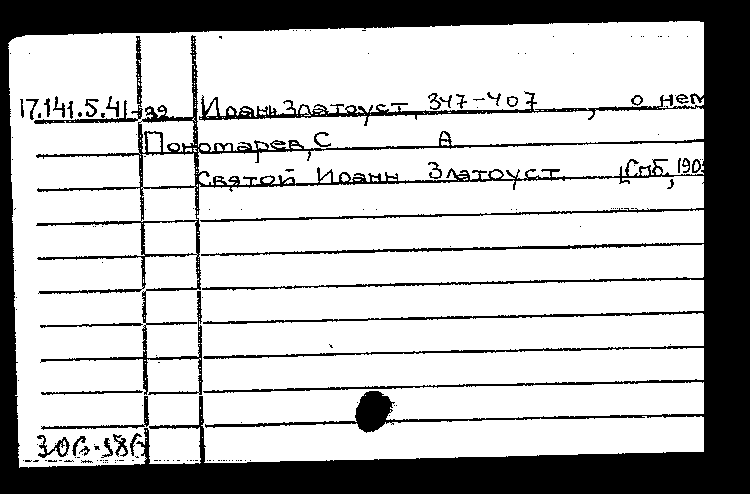 17.141.5.41-39 Иоанн Златоуст, 347-407 , о нем
Пономарев, С А
Святой Иоанн Златоуст. [Спб, 190